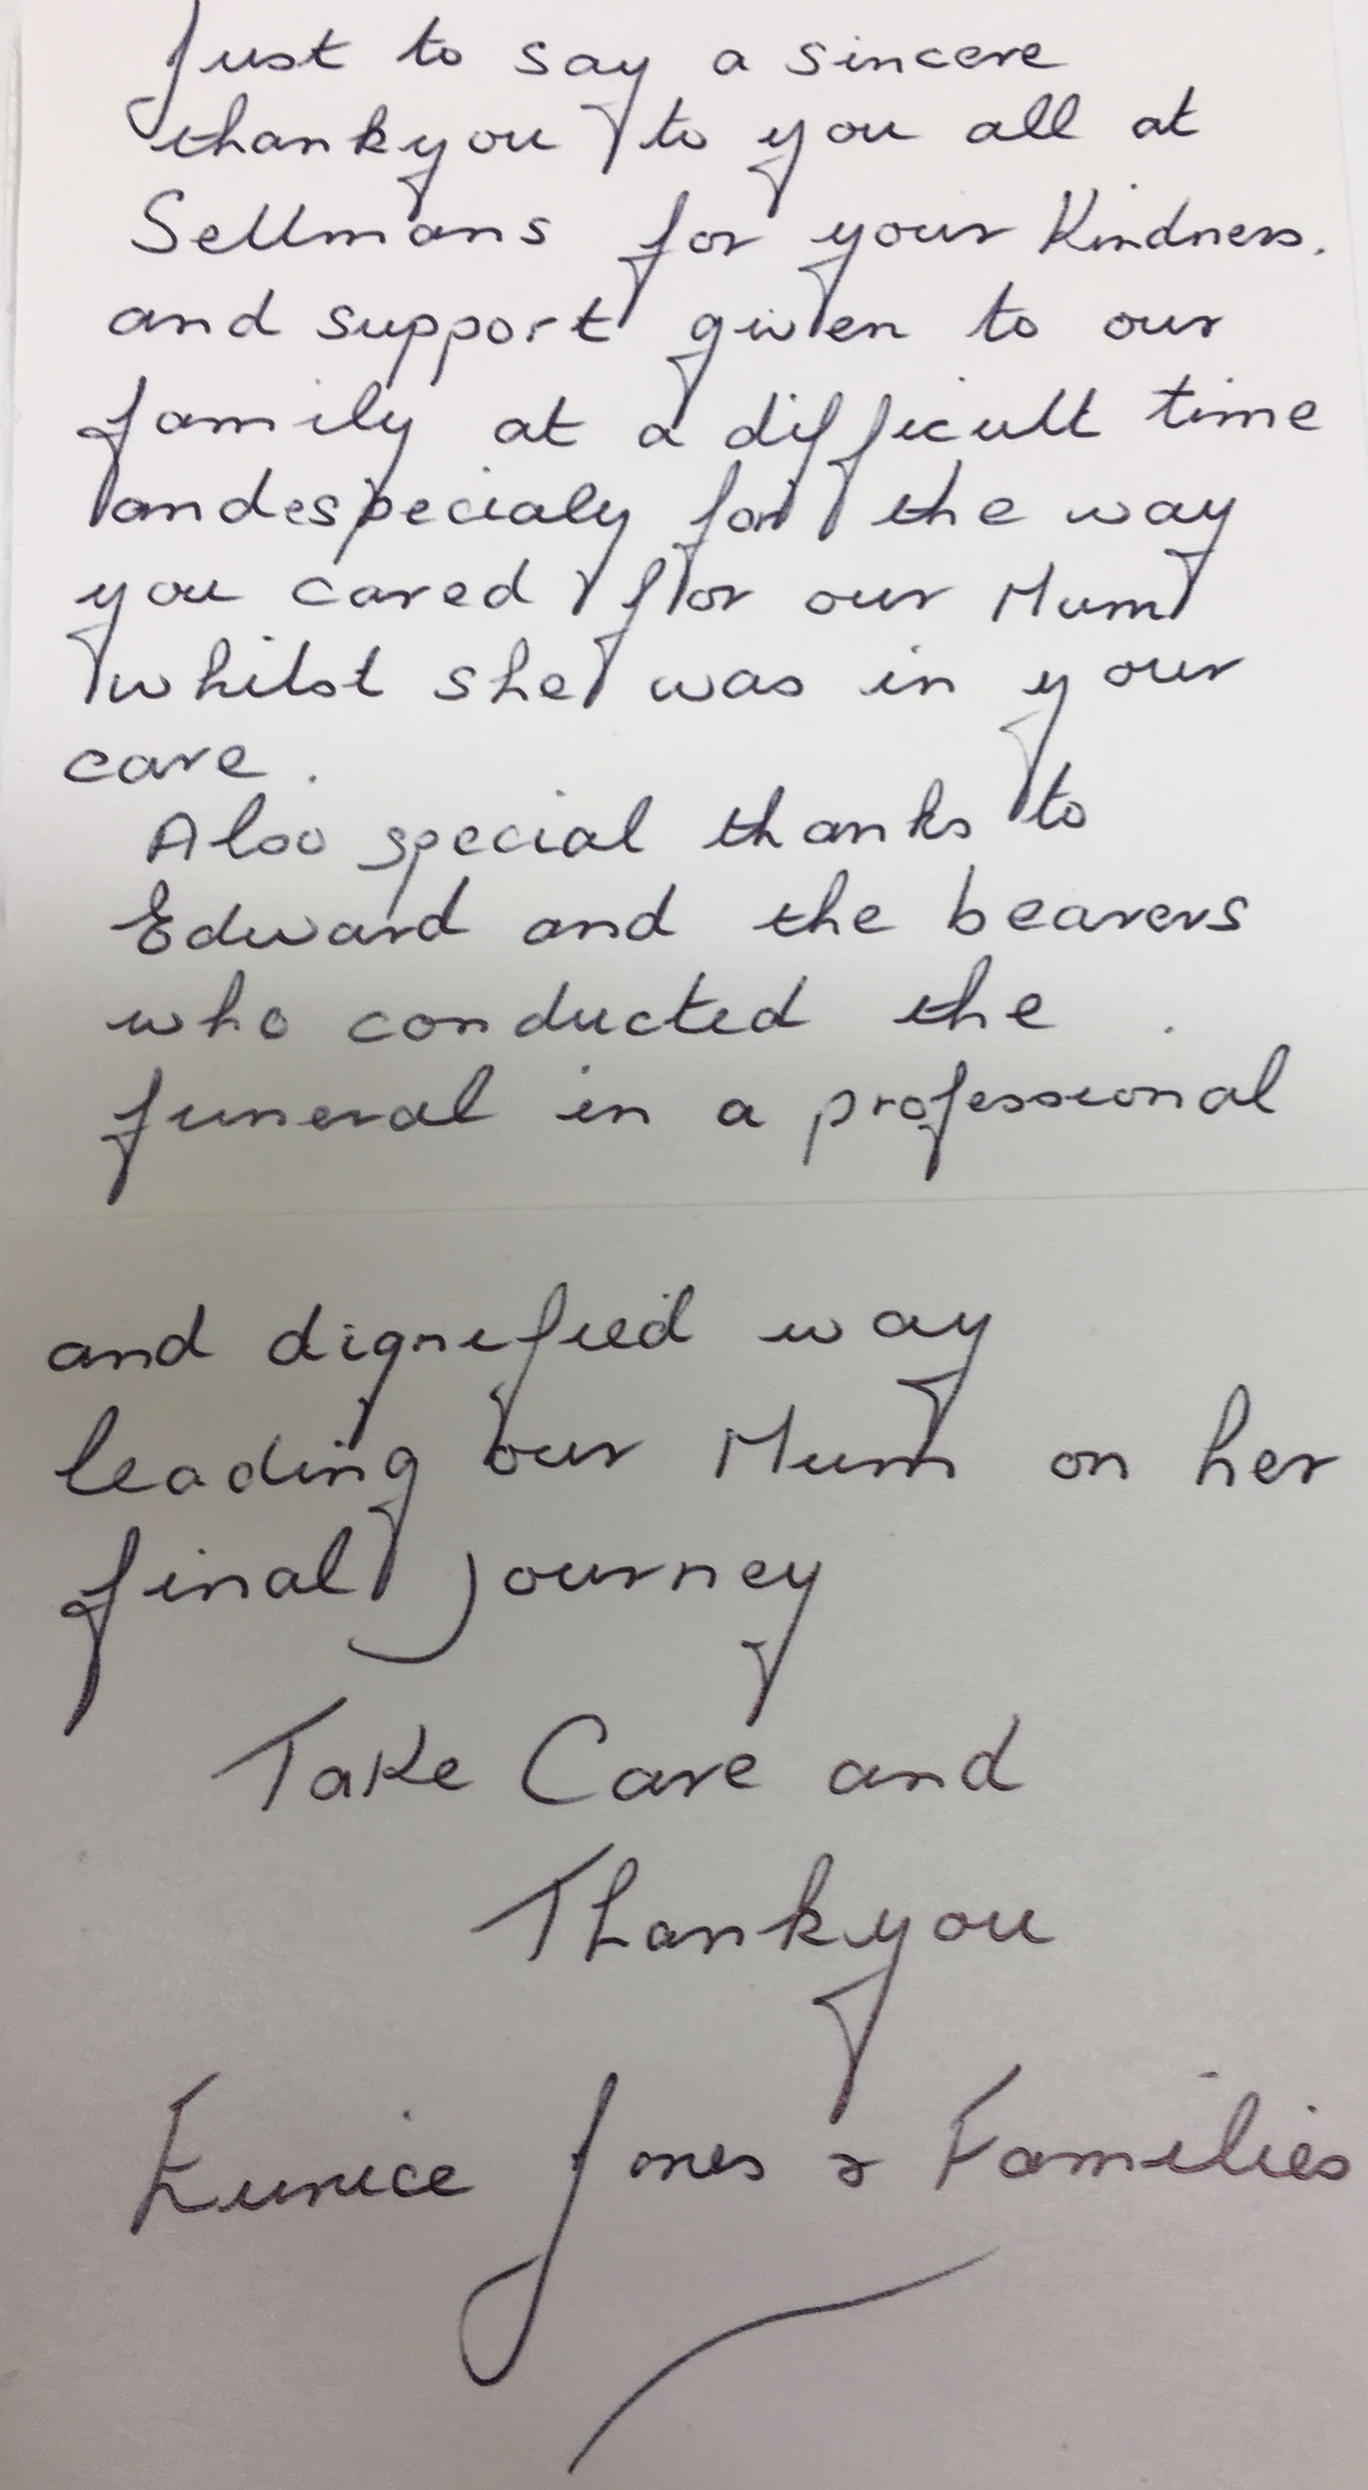 Just to say a sincere
thankyou to you all at
Sellmans for your Kindness.
and support given to our
family at a difficult time
and especialy for the way
you cared for our Mum
whilst she was in your
care.
Also special thanks to
Edward and the bearers
who conducted the
funeral in a professional
and dignified way
leading our Mum on her
final journey
Take Care and
Thankyou
Eunice Jones & Families